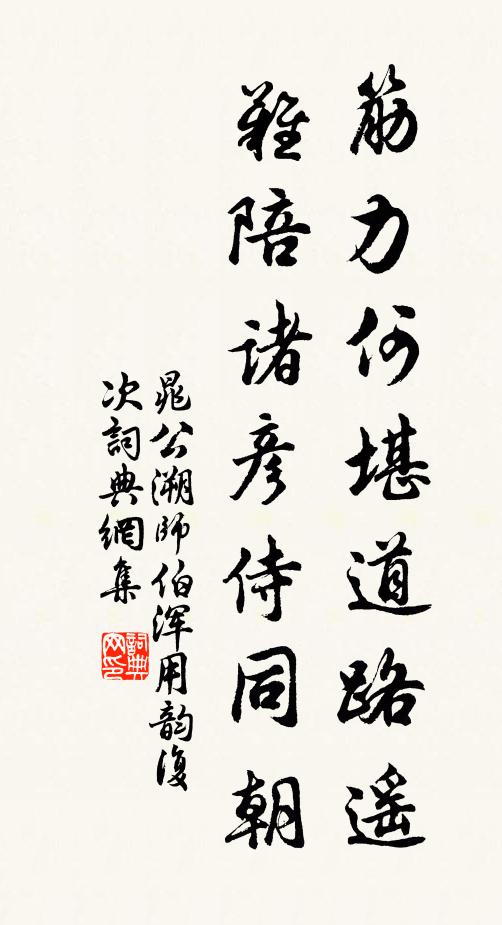 筋力何堪道路遥
難陪诸彦侍同朝
晁公溯師伯浑用韵復
次詞典網集
詞典網印